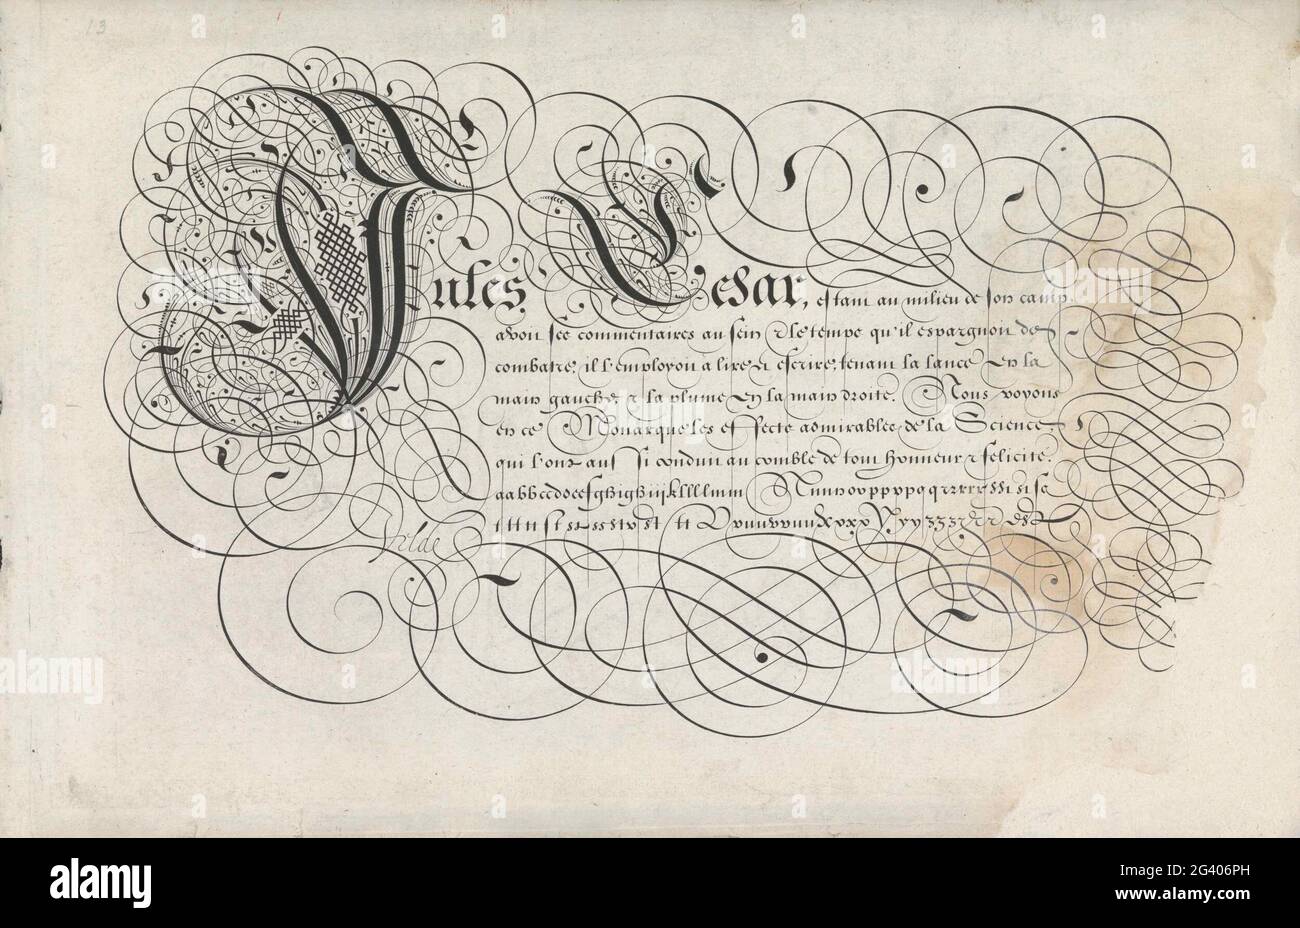 13
Jules Cesar, estant au milieu de son camp,
avoit ses commentaires au sein & le temps qu'il espargnoit de
combatre, il l'employoit a lire et escrire, tenant la lance en la
main gauche & la plume en la main droite. Nous voyons
en ce Monarque les effects admirables de la Science,
qui l'ont aussi conduit au comble de tout honneur & felicité.
alamy
Image ID: 2G406PH
www.alamy.com